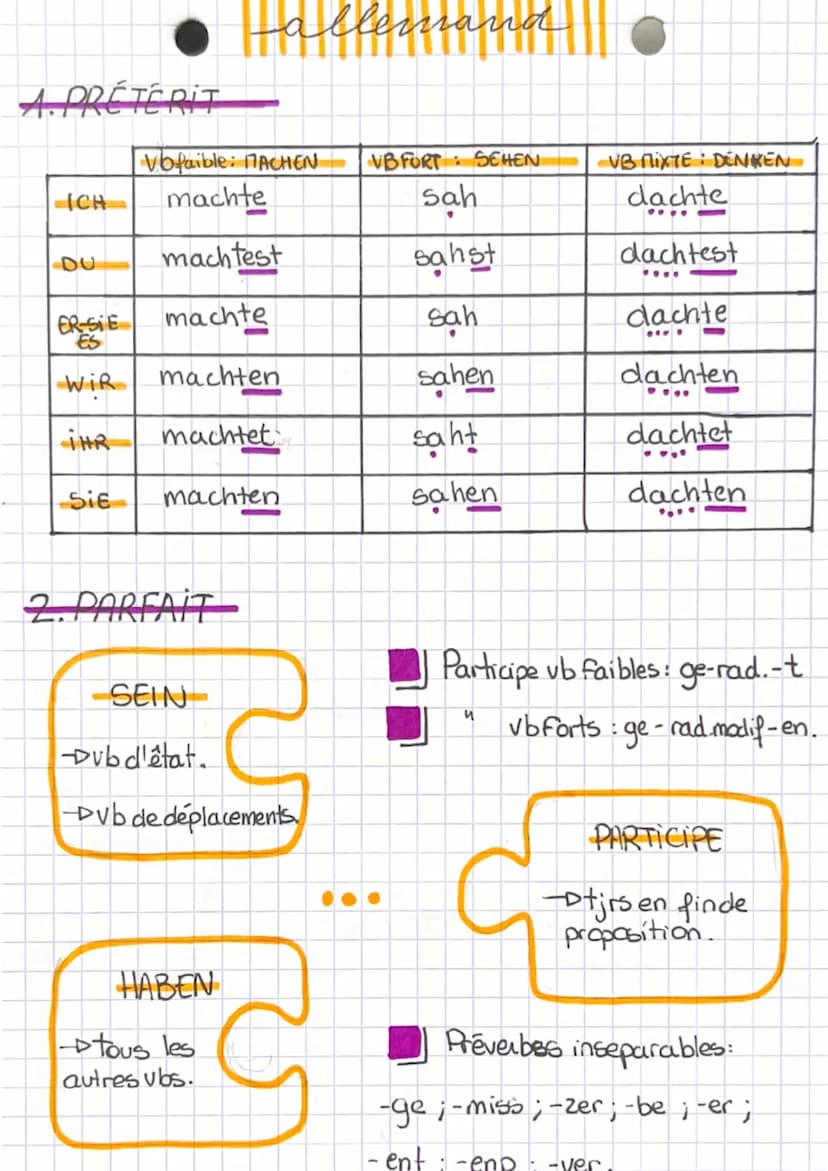 allemand
1. PRÉTÉRIT
Vb faible : MACHEN VB FORT : SEHEN VB MIXTE : DENKEN
ICH machte sah dachte
DU machtest sahst dachtest
ER-SIE machte sah dachte
ES
WIR machten sahen dachten
IHR machtet saht dachtet
SIE machten sahen dachten
2. PARFAIT
SEIN
→ vb d'état.
→ vb de déplacements.
Participe vb faibles : ge-rad.-t
" vb forts : ge-rad.modif-en.
PARTICIPE
→ tjrs en fin de
proposition.
...
HABEN
→ tous les
autres vbs.
Préverbes inseparables :
-ge ; -miss ; -zer ; -be ; -er ;
-ent ; -emp ; -ver.